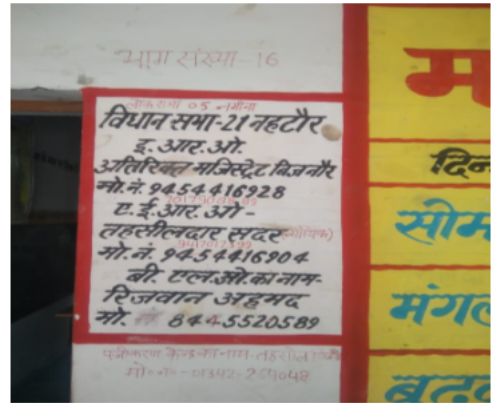 भाग संख्या-16
लोकसभा 05 नगीना
विधान सभा-21 नहटौर
इ.आर.ओ.
अतिरिक्त मजिस्ट्रेट बिजनौर
मो.नं. 9454416928
ए.ई.आर.ओ-
तहसीलदार सदर
मो.नं. 9454416904
बी. एल.ओ.का नाम-
रिजवान अहमद
मो. 8445520589
पंजीकरण केन्द्र का नाम-तहसील
मो-नं-01342-
म
दिन
सोम
मंगल